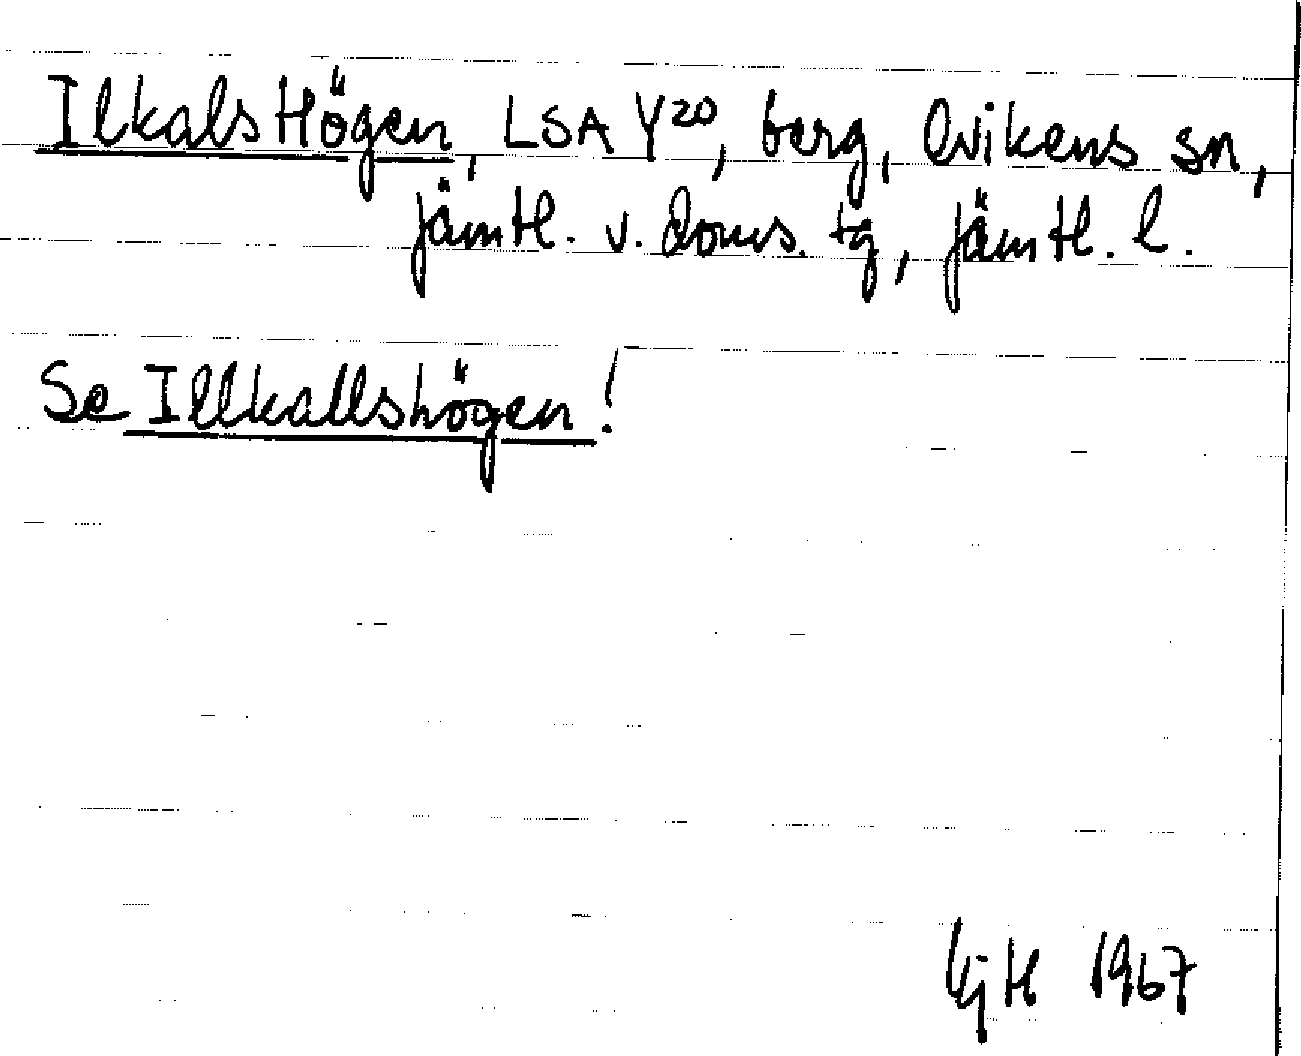 IlkalsHögen, LSA Y20, berg, Ovikens sn,
Jämtl. v. doms. tg, Jämtl. l.
Se Illkallshögen!
KjH 1967